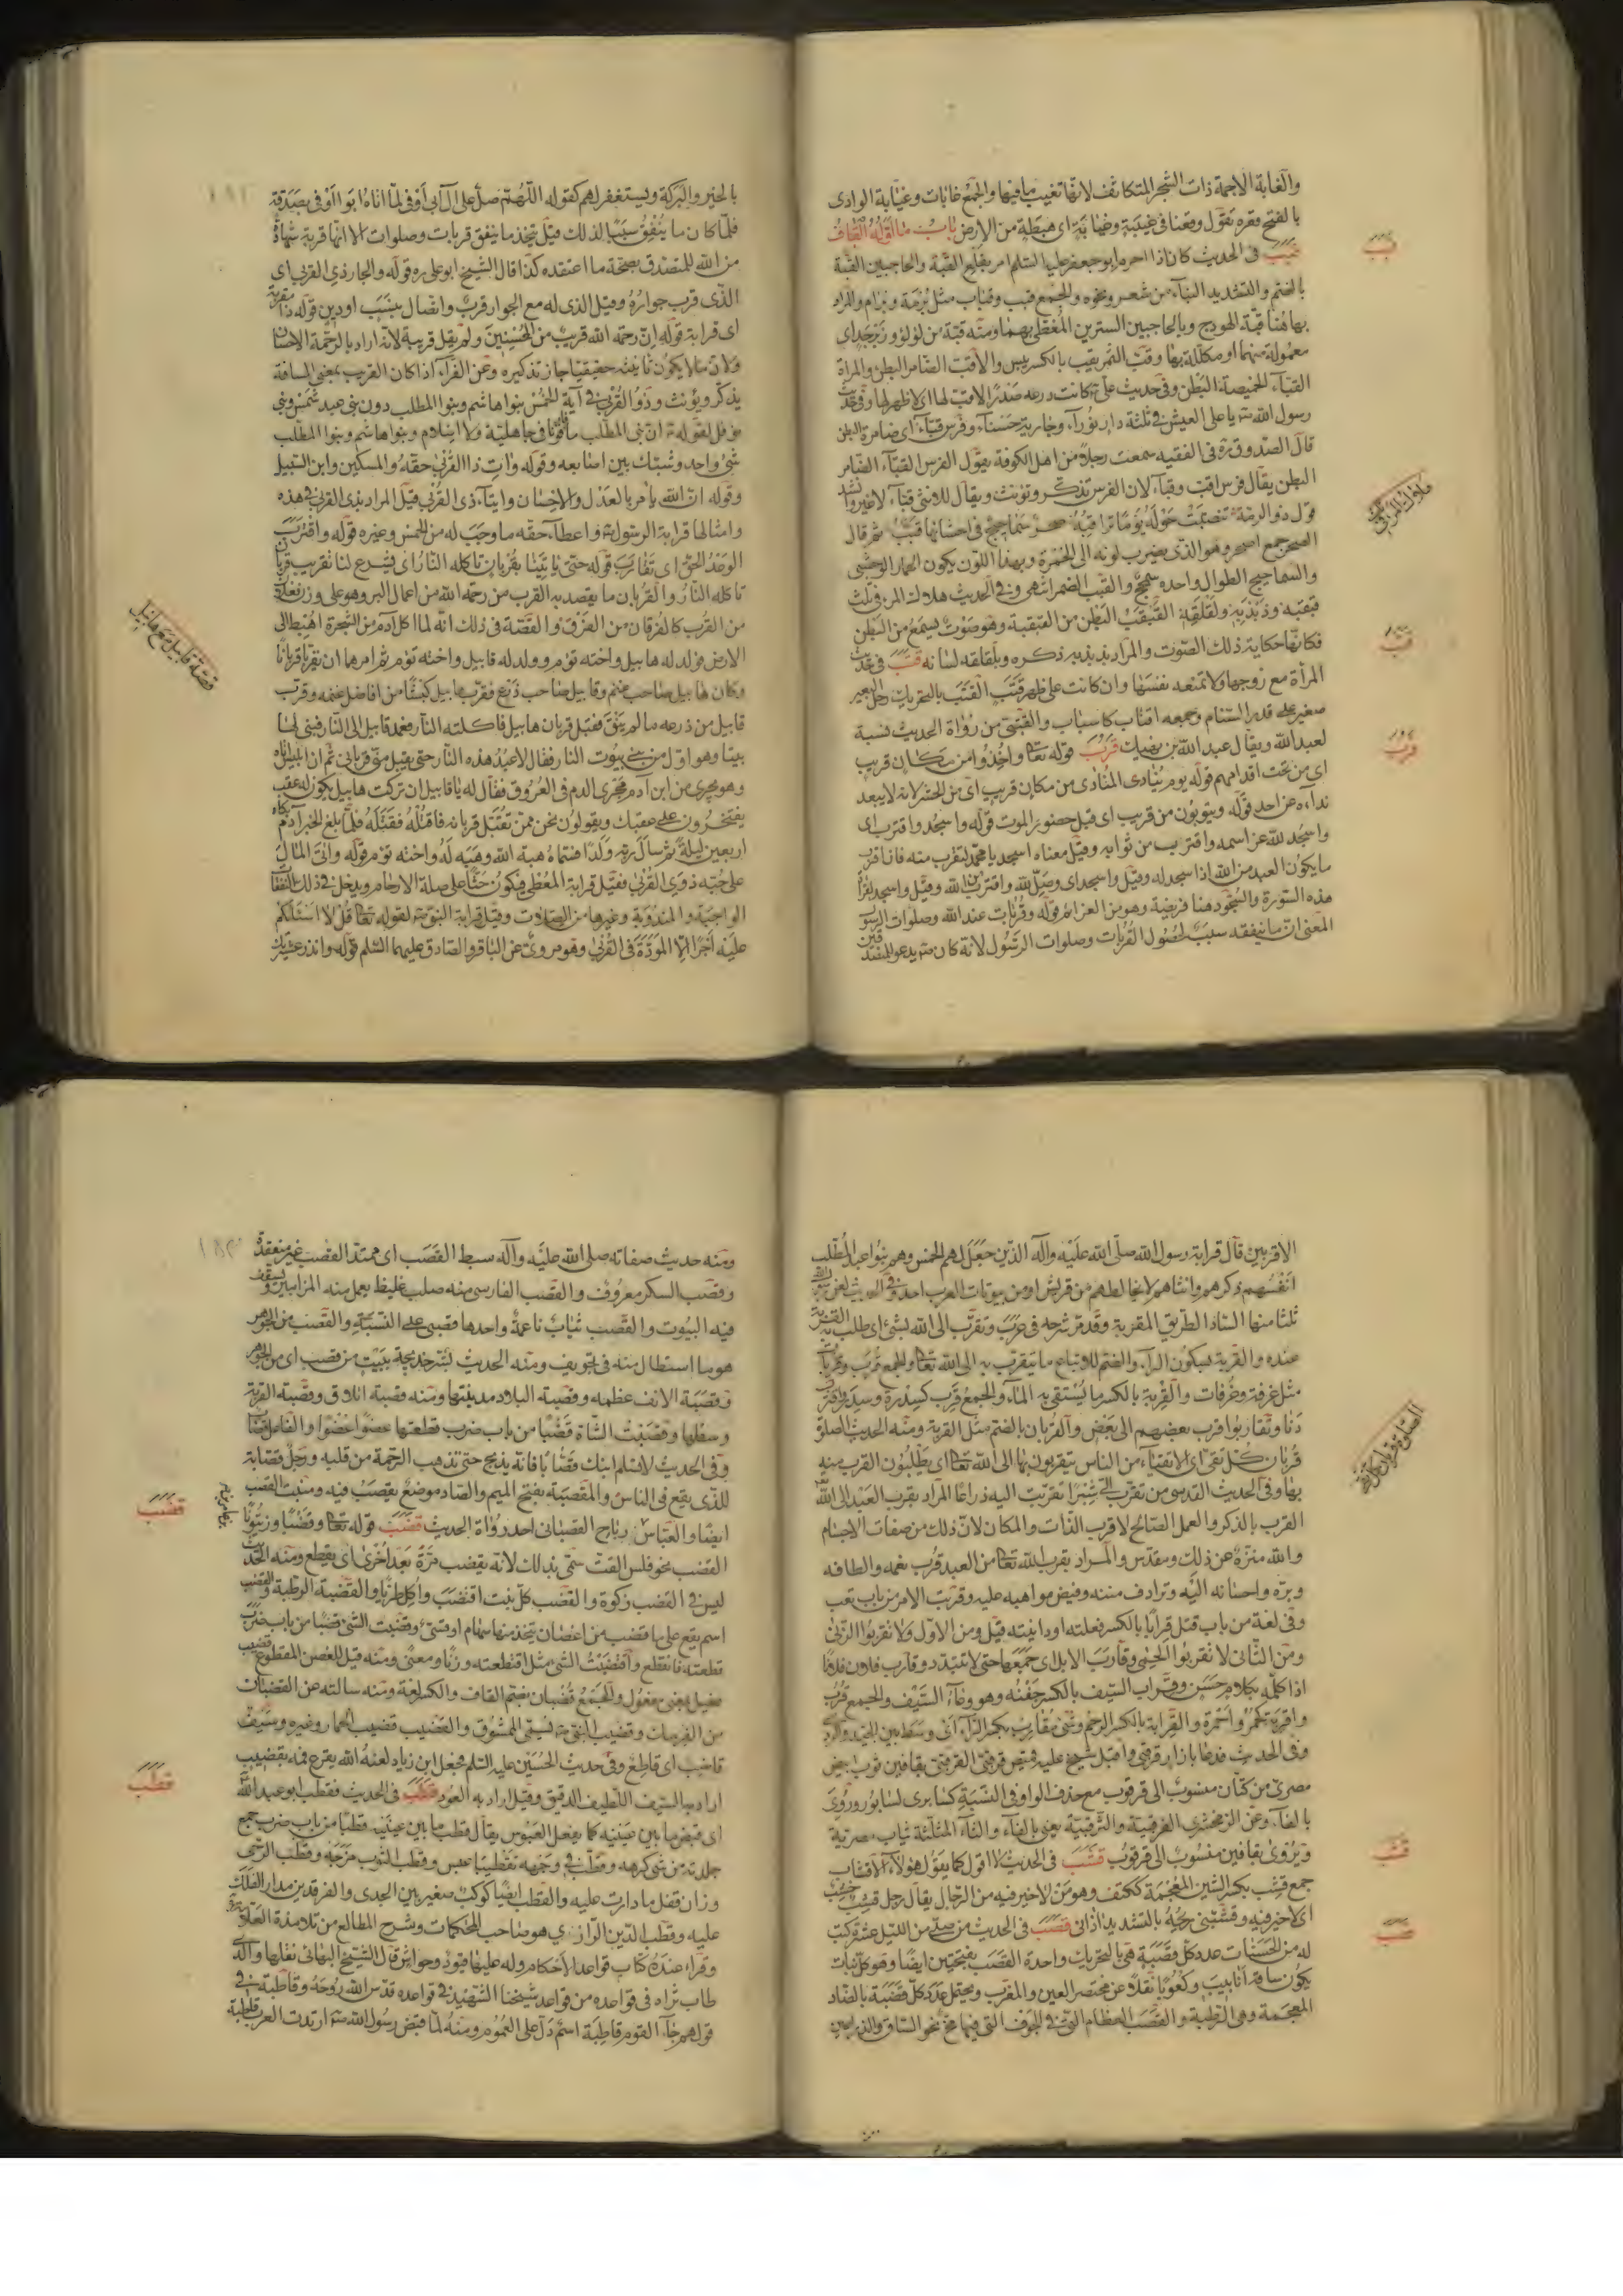 والغابة الاجمة ذات الشجر المتكاثف لانها تغيب ما فيها والجمع غابات وغيابة الوادى
بالفتح وقره تقول وقعنا فى غيبة وغيابة اى هبطة من الارض باب ما اوله القاف
قبب فى الحديث كان اذا احرم ابو جعفر عليه السلم امر بقلع القبة والحاجبين القبة
بالضم والتشديد البناء من شعر ونحوه والجمع قبب وقباب مثل برمة وبرام والمراد
بها هنا قبة الهودج وبالحاجبين السترين المغطى بهما ومنه قبة من لؤلؤ وزبرجد اى
معمولة منهما او مكللة بها وقب التمر يقب بالكسر يبس والاقب الضامر البطن والمراة
القباء الخميصة البطن وفى حديث على كانت درعه صدرا لا قب لها اى لا ظهر لها وفى حديث
رسول الله يا على العيش فى ثلثة دار قوراء وجارية حسناء وفرس قباء اى ضامرة البطن
قال الصدوق ره فى الفقيه سمعت رجلا من اهل الكوفة يقول الفرس القباء الضامر
البطن يقال فرس اقب وقباء لان الفرس تذكر وتؤنث ويقال للانثى قباء لا غير وانشد
قول ذو الرمة تنصبت حوله يوما تراقبه صحر سماحيج فى احشائها قبب ثم قال
الصحر جمع اصحر وهو الذى يضرب لونه الى الحمرة وبهذا اللون يكون الحمار الوحشى
والسماحيج الطوال واحده سمحج والقبب الضمر انتهى وفى الحديث هلاك المرء فى ثلث
قبقبه وذبذبه ولقلقه القبقب البطن من القبقبة وهو صوت يسمع من البطن
فكانها حكاية ذلك الصوت والمراد بذبذبه ذكره وبلقلقه لسانه قتب فى حديث
المراة مع زوجها ولا تمنعه نفسها وان كانت على ظهر قتب القتب بالتحريك رحل البعير
صغير على قدر السنام وجمعه اقتاب كاسباب والقتبى من رواة الحديث نسبة
لعبد الله ويقال عبد الله بن نهيك قرب قوله تعالى واخذوا من مكان قريب
اى من تحت اقدامهم قوله يوم ينادى المنادى من مكان قريب اى من المحشر لانه لا يبعد
نداءه عن احد قوله ويتوبون من قريب اى قبل حضور الموت قوله واسجد واقترب اى
واسجد لله عز اسمه واقترب من ثوابه وقيل معناه اسجد يا محمد لتقرب منه فان اقرب
ما يكون العبد من الله اذا سجد له وقيل واسجد اى وصل لله واقترب من الله وقيل واسجد لقراة
هذه السورة والسجود هنا فريضة وهو من العزائم قوله وقربات عند الله وصلوات الرسول
المعنى ان ما ينفقه سبب لحصول القربات وصلوات الرسول لانه كان يدعو للمتصدقين
قبب
هلاك المرء فى ثلث
قتب
قرب
بالخير والبركة ويستغفر لهم كقوله اللهم صل على آل ابى اوفى لما اتاه ابو اوفى بصدقة
فلما كان ما ينفق سببا لذلك قيل يتخذ ما ينفق قربات وصلوات الا انها قربة شهادة
من الله للمتصدق بصحة ما اعتقده كذا قال الشيخ ابو على ره قوله والجار ذى القربى اى
الذى قرب جواره وقيل الذى له مع الجوار قرب واتصال بنسب او دين قوله ذا مقربة
اى قرابة قوله ان رحمة الله قريب من المحسنين ولم يقل قريبة لانه اراد بالرحمة الاحسان
ولان ما لا يكون تانيثه حقيقيا جاز تذكيره وعن الفراء اذا كان القريب بمعنى المسافة
يذكر ويؤنث وذوا القربى فى آية الخمس بنوا هاشم وبنوا المطلب دون بنى عبد شمس وبنى
نوفل لقوله ان بنى المطلب ما فارقونا فى جاهلية ولا اسلام وبنوا هاشم وبنوا المطلب
شئ واحد وشبك بين اصابعه وقوله وآت ذا القربى حقه والمسكين وابن السبيل
وقوله ان الله يامر بالعدل والاحسان وايتاء ذى القربى قيل المراد بذى القربى فى هذه
وامثالها قرابة الرسول واعطاء حقه ما وجب له من الخمس وغيره قوله واقترب
الوعد الحق اى تقارب قوله حتى ياتينا بقربان تاكله النار اى يشرع لنا تقريب قربان
تاكله النار والقربان ما يقصد به القرب من رحمة الله من اعمال البر وهو على وزن فعلان
من القرب كالفرقان من الفرق والقصة فى ذلك انه لما اكل آدم من الشجرة اهبط الى
الارض فولد له هابيل واخته توءم وولد له قابيل واخته توءم ثم امرهما ان يقربا قربانا
وكان هابيل صاحب غنم وقابيل صاحب زرع فقرب هابيل كبشا من افاضل غنمه وقرب
قابيل من زرعه ما لم ينق فقبل قربان هابيل فاكلته النار فعمد قابيل الى النار فبنى لها
بيتا وهو اول من بنى بيوت النار فقال لاعبد هذه النار حتى يقبل منى قربانى ثم ان ابليس اتاه
وهو يجرى من ابن آدم مجرى الدم فى العروق فقال له يا قابيل ان تركت هابيل يكون له عقب
يفتخرون على عقبك ويقولون نحن ممن تقبل قربانه فاقتله فقتله فلما بلغ الخبر آدم بكاه
اربعين ليلة ثم سال ربه ولدا فسماه هبة الله وهبه له واخته توءم قوله وآتى المال
على حبه ذوى القربى فقيل قرابة المعطى فيكون حثا على صلة الارحام ويدخل فى ذلك النفقات
الواجبة والمندوبة وغيرها من الصلات وقيل قرابة النبوة لقوله تعالى قل لا اسئلكم
عليه اجرا الا المودة فى القربى وهو مروى عن الباقر والصادق عليهما السلم قوله وانذر عشيرتك
قصة قابيل مع هابيل
الاقربين قال قرابة رسول الله صلى الله عليه وآله الذين جعل لهم الخمس وهم بنوا عبد المطلب
انفسهم ذكرهم وانثاهم لا يخالطهم من قريش او من بيوتات العرب احد وفى الحديث لعن رسول الله
ثلثا منها الساد الطريق المقربة وقد مر شرحه فى عرب وتقرب الى الله بشئ اى طلب به القربة
عنده والقربة بسكون الراء والضم للاتباع ما يتقرب به الى الله تعالى والجمع قرب وقربات
مثل غرفة وغرفات والقربة بالكسر ما يستقى به الماء والجمع قرب كسدرة وسدر واقترب
دنا وتقاربوا قرب بعضهم الى بعض والقربان بالضم مثل القربة ومنه الحديث الصلوة
قربان كل تقى اى الاتقياء من الناس يتقربون بها الى الله تعالى اى يطلبون القرب منه
بها وفى الحديث القدسى من تقرب الى شبرا تقربت اليه ذراعا المراد بقرب العبد الى الله
القرب بالذكر والعمل الصالح لا قرب الذات والمكان لان ذلك من صفات الاجسام
والله منزه عن ذلك ومقدس والمراد بقرب الله تعالى من العبد قرب نعمه والطافه
وبره واحسانه اليه وترادف مننه وفيض مواهبه عليه وقربت الامر من باب تعب
وفى لغة من باب قتل قربانا بالكسر فعلته او دانيته قيل ومن الاول ولا تقربوا الزنى
ومن الثانى لا تقربوا الحمى وقارب الابل اى جمعها حتى لا تتبدد وقارب فلان فلانا
اذا كلمه بكلام حسن وقراب السيف بالكسر جفنه وهو وعاء السيف والجمع قرب
واقربة كحمر واحمرة والقرابة بالكسر الرحم وشئ مقارب بكسر الراء اى وسط بين الجيد والردى
وفى الحديث فدعا بازار قرقبى واقبل شيخ عليه قميص قرقبى القرقبى بقافين ثوب ابيض
مصرى من كتان منسوب الى قرقوب مع حذف الواو فى النسبة كسابرى لسابور وروى
بالفاء وعن الزمخشرى الفرقبية والثرقبية يعنى بالفاء والثاء المثلثة ثياب مصرية
ويروى بقافين منسوب الى قرقوب قشب فى الحديث لا اقول كما يقول هؤلاء الاقشاب
جمع قشب بكسر الشين المعجمة ككتف وهو من لا خير فيه من الرجال يقال رجل قشب خشب
اى لا خير فيه وقشبنى ريحه بالتشديد اذانى قصب فى الحديث من صلى من الليل عشرة كتب
له من الحسنات عدد كل قصبة هى بالتحريك واحدة القصب بفتحتين ايضا وهو كل نبات
يكون ساقه انابيب وكعوبا نقلا عن مختصر العين والمغرب ويحتمل عدد كل قضبة بالضاد
المعجمة وهى الرطبة والقصب العظام التى فى الجوف التى فيها مخ نحو الساق والذراعين
قشب
قصب
ومنه حديث صفاته صلى الله عليه وآله سبط القصب اى ممتد القصب غير منعقده
وقصب السكر معروف والقصب الفارسى منه صلب غليظ يعمل منه المزامير ويسقف
فيه البيوت والقصب ثياب ناعمة واحدها قصبى على النسبة والقصب من الجوهر
هو ما استطال منه فى تجويف ومنه الحديث بشر خديجة ببيت من قصب اى من الجوهر
وقصبة الانف عظمه وقصبة البلاد مدينتها ومنه قصبة اتلاق وقصبة القرية
وسطها وقصبت الشاة قصبا من باب ضرب قطعتها عضوا عضوا والفاعل قصاب
وفى الحديث لا تسلم ابنك قصابا فانه يذبح حتى تذهب الرحمة من قلبه ورجل قصابة
للذى يقع فى الناس والمقصبة بفتح الميم والصاد موضع يقصب فيه ومنبت القصب
ايضا والعباس بن رباح القصبانى احد رواة الحديث قضب قوله تعالى وقضبا وزيتونا
القضب نحو فلس القت سمى بذلك لانه يقضب مرة بعد اخرى اى يقطع ومنه الحديث
ليس فى القضب زكوة والقضب كل نبت اقتضب واكل طريا والقضبة الرطبة والقضب
اسم يقع على ما قضب من اغصان يتخذ منها سهام او قسى وقضبت الشئ قضبا من باب ضرب
قطعته فانقطع واقتضبت الشئ مثل اقتطعته وزنا ومعنى ومنه قيل للغصن المقطوع قضيب
فعيل بمعنى مفعول والجمع قضبان بضم القاف والكسر لغة ومنه سالته عن القضبان
من الفرسان وقضيب النبى يسمى الممشوق والقضيب قضيب الحمار وغيره وسيف
قاضب اى قاطع وفى حديث الحسين عليه السلم فجعل ابن زياد لعنه الله يقرع فمه بقضيب
اراد به السيف اللطيف الدقيق وقيل اراد به العود قطب فى الحديث فقطب ابو عبد الله
اى قبض ما بين عينيه كما يفعل العبوس يقال قطب ما بين عينيه قطبا من باب ضرب جمع
جلدته من شئ كرهه وقطب فى وجهه تقطيبا عبس وقطب الثوب مزجه وقطب الرحى
وزان قفل ما دارت عليه والقطب ايضا كوكب صغير بين الجدى والفرقدين مدار الفلك
عليه وقطب الدين الرازى هو صاحب المحاكمات وشرح المطالع من تلامذة العلامة
وقراء عنده كتاب قواعد الاحكام وله عليها قيود وحواش قال الشيخ البهائى نقلها والدى
طاب ثراه فى قواعده من قواعد شيخنا الشهيد فى قواعده قدس الله روحه وقاطبة فى
قولهم جاء القوم قاطبة اسم دل على العموم ومنه لما قبض رسول الله ارتدت العرب قاطبة
قضب
قطب